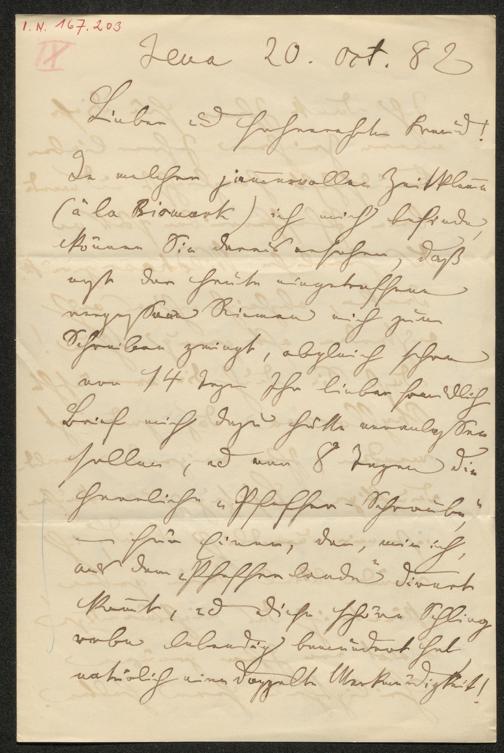 I. N. 167.203
IX
Jena 20. Oct. 82
Lieber und hochverehrter Freund!
In welcher jammervollen Zeitklemme
(à la Bismark) ich mich befinde,
können Sie daraus ersehen, daß
erst der heute eingetroffene
Riemen mich zum
Schreiben zwingt, obgleich schon
vor 14 Tagen Ihr lieber freundlich
Brief mich dazu hätte veranlassen
sollen, und vor 8 Tagen die
herrliche „Pfeffer-Schraube,"
— für Einen, der, wie ich,
aus dem „Pfefferlande" direct
kommt, und diese schöne Schling
rebe lebendig bewundert hat
natürlich eine doppelte Merkwürdigkeit!